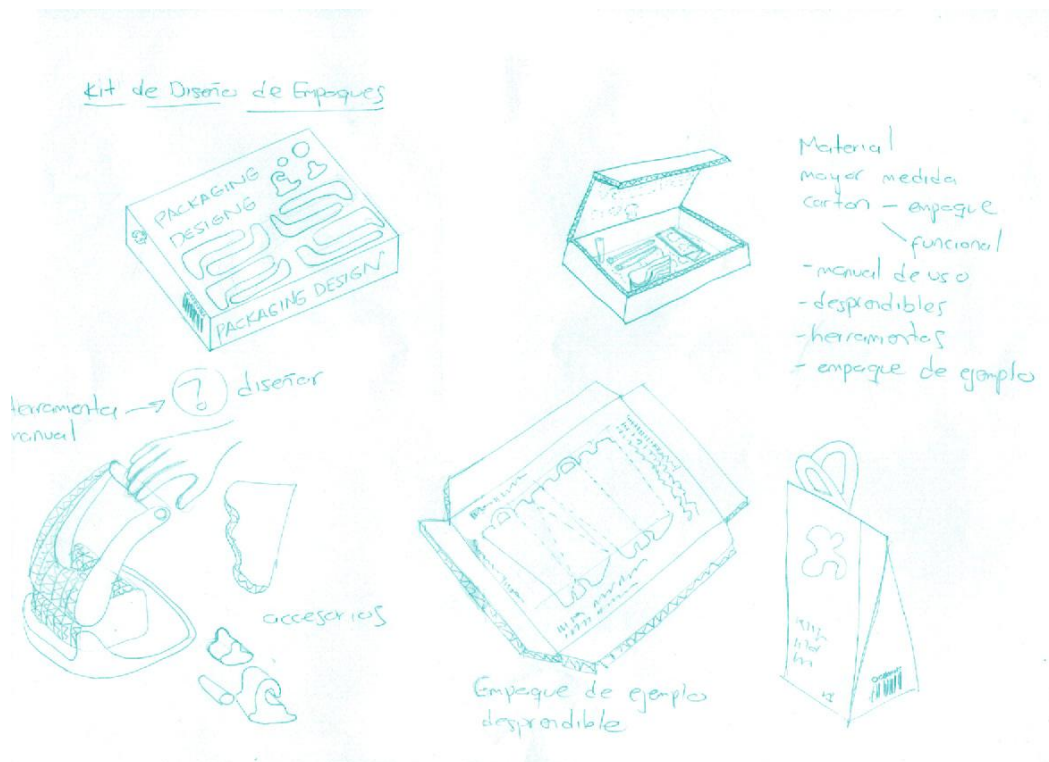 Kit de Diseño de Empaques
PACKAGING
DESIGNG
PACKAGING DESIGN
Material
mayor medida
carton - empaque
funcional
- manual de uso
- desprendibles
- herramientas
- empaque de ejemplo
herramienta → ? diseñar
manual
accesorios
Empaque de ejemplo
desprendible